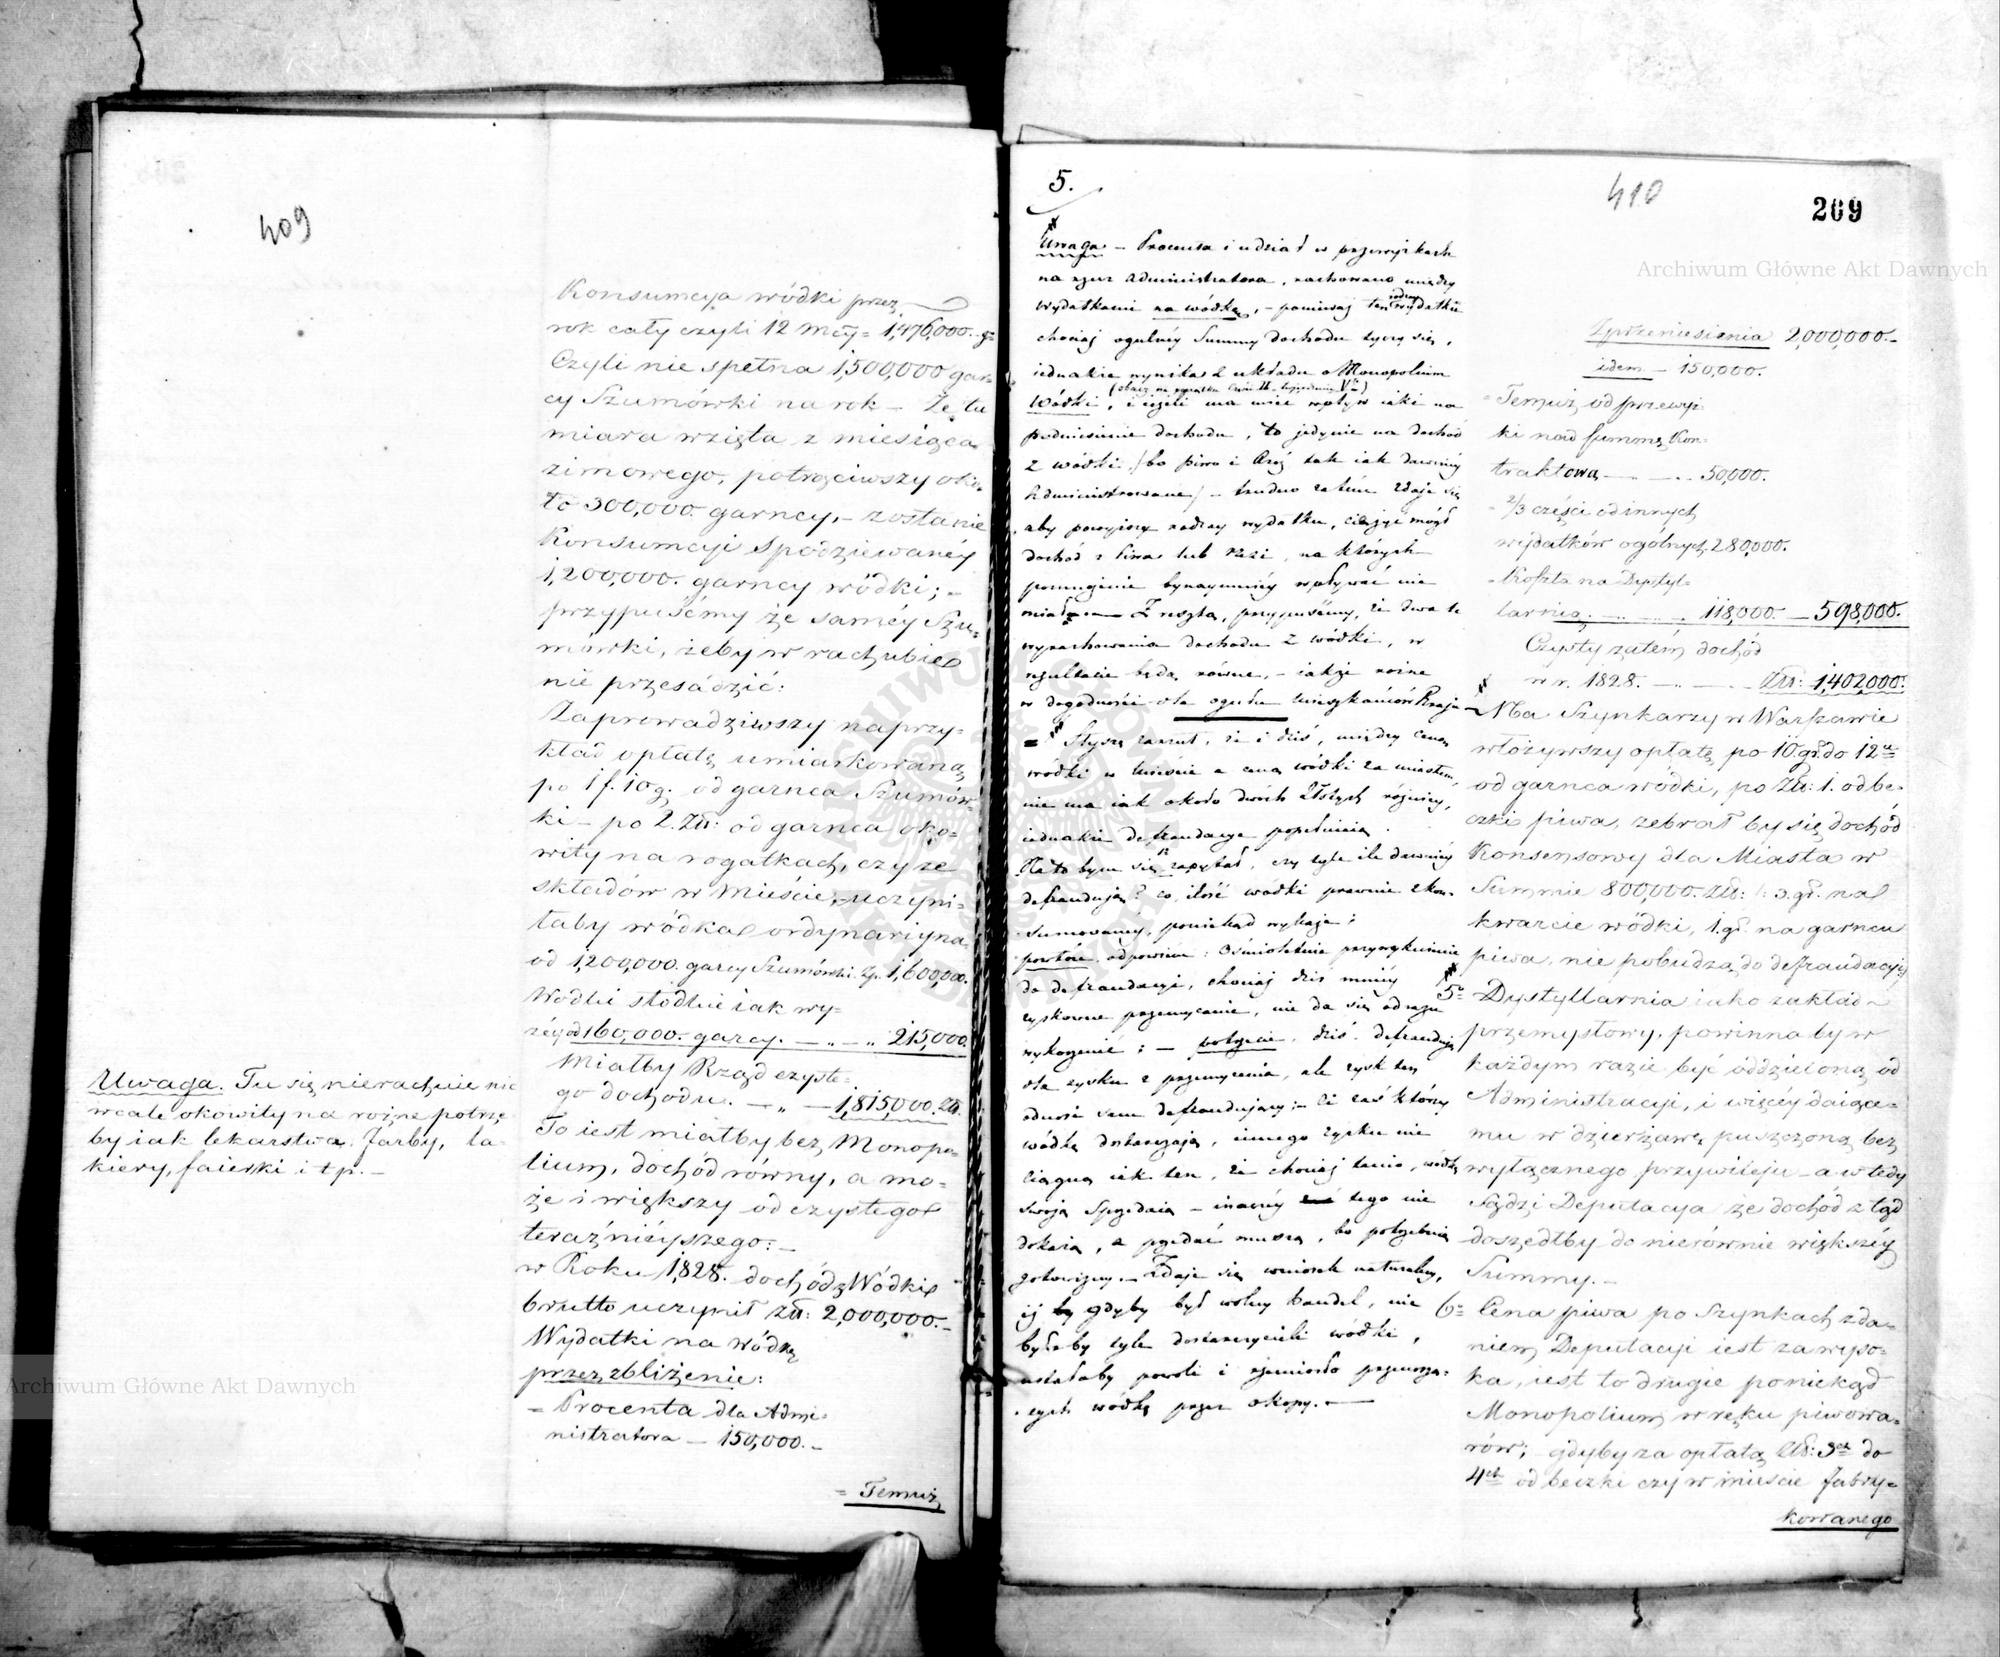 409
Konsumcyja wódki przez
rok cały czyli 12 mcy = 1,476,000. g=
Czyli nie spełna 1,500,000 gar=
cy Szumówki na rok — Że ta
miara wzięta z miesiąca
zimowego, potrąciwszy oko=
ło 300,000 garncy, — zostanie
Konsumcyi spodziewanéy
1,200,000. garncy wódki; =
przypuśćmy że saméy Szu=
mówki, żeby w rachubie
nie przesadzić:
Zaprowadziwszy naprzy=
kład opłatę umiarkowaną
po 1 f. 10 g. od garnca Szumów=
ki — po 2. Zł: od garnca oko=
wity na rogatkach, czy ze
składów w Mieście, — uczyni=
łaby wódka ordynaryjna
od 1,200,000. garcy Szumówki Zp. 1,600,000.
Wodki słodkie iak wy=
żéy od 160,000. garcy. — „ — „ 215,000.
Miałby Rząd czyste=
go dochodu. — „ — 1,815,000. Zł.
To iest miałby bez Monopo=
lium, dochód równy, a mo=
że i większy od czystego
teraźniéyszego: —
w Roku 1828. dochód z Wódki
brutto uczynił Zł: 2,000,000. —
Wydatki na wódkę
przez zbliżenie:
= Procenta dla Admi=
nistratora — 150,000. —
= Temuż
Uwaga. Tu się nierachuie nic
wcale okowity na rożne potrze=
by iak lekarstwa, farby, la=
kiery, faierki i t p. —
5.
410
269
Uwaga — Procenta i udział w przewyżkach
na rzecz Administratora, rachowano między
wydatkami na wódkę, — ponieważ ten rodzay wydatku
chociaż ogulnéy Summy dochodu tyczy się,
iednakże wynika z układu o Monopolium
Wódki, i ieżeli ma mieć wpływ iaki na
podniesienie dochodu, to jedynie na dochód
z wódki / bo piwo i Rzeź tak iak dawniéy
Administrowane / — trudno zatém zdaje się
aby powyższy rodzay wydatku, ciążyć mógł
dochód z Piwa lub rzezi, na których
pomnożenie bynaymniéy wpływać nie
miał — Z resztą, przypuśćmy, że dwa te
wyrachowania dochodu z wódki, w
rezultacie będą równe, — iakże różne
w dogodności dla ogułu mieszkańców Kraju
= Słyszę zarzut, że i dziś, między ceną
wódki w mieście a ceną wódki za miastem,
nie ma iak około dwóch Złotych różnicy,
iednakże defraudacye popełniaią.
Na to bym się zapytał, czy tyle ile dawniéy
defraudują? co, ilość wódki prawnie skon=
sumowanéy, poniekąd wykaże;
powtóre odpowiem: Ośmioletnie przywyknienie
do defraudacyi, chociaż dziś mniéy
zyskowne przemycanie, nie da się odrazu
wykorzenić; — potrzecie, dziś. Defraudują
dla zysku z przemycenia, ale zysk ten
odnosi sam defraudujący; — Ci zaś którzy
wódkę dostarczają, innego zysku nie
ciągną iak ten, że chociaż tanio, wódkę
swoją sprzedaią — inaczéy tego nie
dokażą, a przedać muszą, bo potrzebują
gotowizny. — Zdaje się wniosek naturalny,
iż gdyby był wolny handel, nie
byłoby tyle dostarczycieli wódki,
ustałaby powoli i rzemiosło przenoszą=
cych wódkę przez okopy. —
Z przeniesienia 2,000,000. —
idem — 150,000.
= Temuż od przewyż
ki nad summę Kon=
traktową — — 50,000.
= 2/3 części od innych
wydatków ogólnych 280,000.
= Koszta na Dystyl=
larnią — 118,000. — 598,000.
Czysty zatém dochód
w r. 1828. — — Zł: 1,402,000.
Na Szynkarzy w Warszawie
włożywszy opłatę po 10 gr. do 12
od garnca wódki, po Zł: 1. od be=
czki piwa, zebrał by się dochód
Konsensowy dla Miasta w
Summie 800,000. Zł: /: 3. gr. na
kwarcie wódki, 1. gr. na garncu
piwa, nie pobudzą do defraudacyi
5° Dystyllarnia iako zakład
przemysłowy, powinna by w
każdym razie być oddzieloną od
Administracyi, i więcéy daiące=
mu w dzierżawę puszczoną bez
wyłącznego przywileju — a wtedy
sądzi Deputacya że dochód z tąd
doszedłby do nierównie większéy
Summy. —
6° Cena piwa po szynkach zda=
niem Deputacyi iest za wyso=
ka, iest to drugie poniekąd
Monopolium w ręku piwowa=
rów; gdyby za opłatą Zł: 3ch do
4ch od beczki czy w mieście fabry=
kowanego
Archiwum Główne Akt Dawnych
Archiwum Główne Akt Dawnych